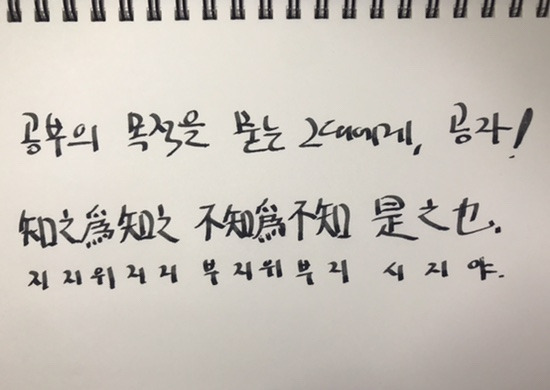 공부의 목적을 묻는 그대에게, 공자!
知之爲知之 不知爲不知 是之也.
지지위지지 부지위부지 시지야.